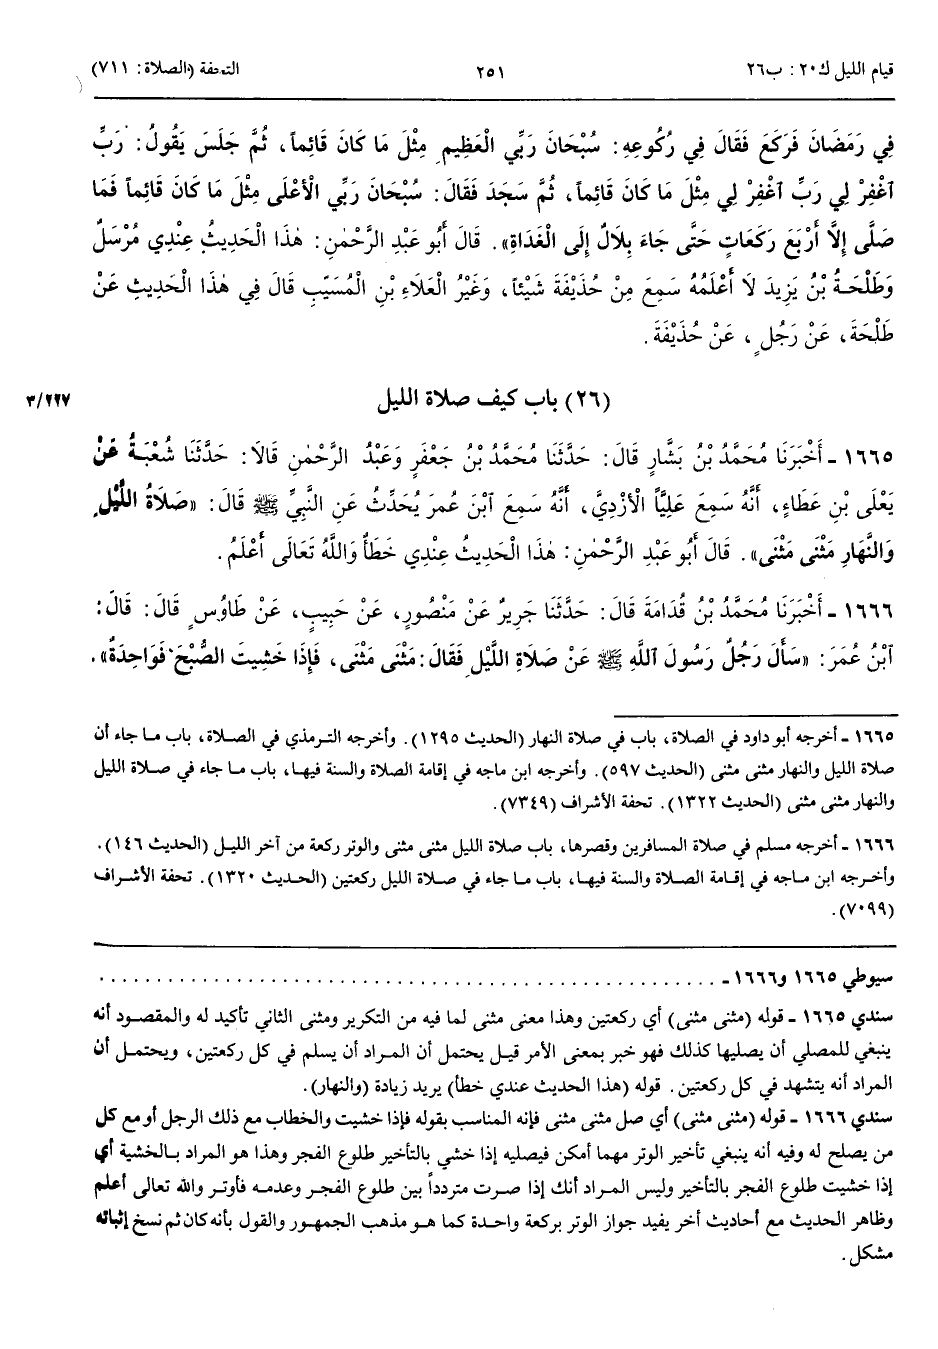 قيام الليل ك٢٠: ب٢٦
٢٥١
التحفة (الصلاة: ٧١١)
فِي رَمَضَانَ فَرَكَعَ فَقَالَ فِي رُكُوعِهِ: سُبْحَانَ رَبِّي الْعَظِيمِ مِثْلَ مَا كَانَ قَائِماً، ثُمَّ جَلَسَ يَقُولُ: رَبِّ
ٱغْفِرْ لِي رَبِّ ٱغْفِرْ لِي مِثْلَ مَا كَانَ قَائِماً، ثُمَّ سَجَدَ فَقَالَ: سُبْحَانَ رَبِّيَ الْأَعْلَى مِثْلَ مَا كَانَ قَائِماً فَمَا
صَلَّى إِلَّا أَرْبَعَ رَكَعَاتٍ حَتَّى جَاءَ بِلَالٌ إِلَى الْغَدَاةِ». قَالَ أَبُو عَبْدِ الرَّحْمٰنِ: هٰذَا الْحَدِيثُ عِنْدِي مُرْسَلٌ
وَطَلْحَةُ بْنُ يَزِيدَ لَا أَعْلَمُهُ سَمِعَ مِنْ حُذَيْفَةَ شَيْئاً، وَغَيْرُ الْعَلَاءِ بْنِ الْمُسَيَّبِ قَالَ فِي هٰذَا الْحَدِيثِ عَنْ
طَلْحَةَ، عَنْ رَجُلٍ، عَنْ حُذَيْفَةَ.
(٢٦) باب كيف صلاة الليل
٣/٢٢٧
١٦٦٥ ـ أَخْبَرَنَا مُحَمَّدُ بْنُ بَشَّارٍ قَالَ: حَدَّثَنَا مُحَمَّدُ بْنُ جَعْفَرٍ وَعَبْدُ الرَّحْمٰنِ قَالَا: حَدَّثَنَا شُعْبَةُ عَنْ
يَعْلَى بْنِ عَطَاءٍ، أَنَّهُ سَمِعَ عَلِيًّا الْأَزْدِيَّ، أَنَّهُ سَمِعَ ٱبْنَ عُمَرَ يُحَدِّثُ عَنِ النَّبِيِّ ﷺ قَالَ: «صَلَاةُ اللَّيْلِ
وَالنَّهَارِ مَثْنَى مَثْنَى». قَالَ أَبُو عَبْدِ الرَّحْمٰنِ: هٰذَا الْحَدِيثُ عِنْدِي خَطَأٌ وَاللَّهُ تَعَالَى أَعْلَمُ.
١٦٦٦ ـ أَخْبَرَنَا مُحَمَّدُ بْنُ قُدَامَةَ قَالَ: حَدَّثَنَا جَرِيرٌ عَنْ مَنْصُورٍ، عَنْ حَبِيبٍ، عَنْ طَاوُسٍ قَالَ: قَالَ:
ٱبْنُ عُمَرَ: «سَأَلَ رَجُلٌ رَسُولَ اللَّهِ ﷺ عَنْ صَلَاةِ اللَّيْلِ فَقَالَ: مَثْنَى مَثْنَى، فَإِذَا خَشِيتَ الصُّبْحَ فَوَاحِدَةٌ».
١٦٦٥ ـ أخرجه أبو داود في الصلاة، باب في صلاة النهار (الحديث ١٢٩٥). وأخرجه الترمذي في الصلاة، باب ما جاء أن
صلاة الليل والنهار مثنى مثنى (الحديث ٥٩٧). وأخرجه ابن ماجه في إقامة الصلاة والسنة فيها، باب ما جاء في صلاة الليل
والنهار مثنى مثنى (الحديث ١٣٢٢). تحفة الأشراف (٧٣٤٩).
١٦٦٦ ـ أخرجه مسلم في صلاة المسافرين وقصرها، باب صلاة الليل مثنى مثنى والوتر ركعة من آخر الليل (الحديث ١٤٦).
وأخرجه ابن ماجه في إقامة الصلاة والسنة فيها، باب ما جاء في صلاة الليل ركعتين (الحديث ١٣٢٠). تحفة الأشراف
(٧٠٩٩).
سيوطي ١٦٦٥ و١٦٦٦ ـ ..................................................
سندي ١٦٦٥ ـ قوله (مثنى مثنى) أي ركعتين وهذا معنى مثنى لما فيه من التكرير ومثنى الثاني تأكيد له والمقصود أنه
ينبغي للمصلي أن يصليها كذلك فهو خبر بمعنى الأمر قيل يحتمل أن المراد أن يسلم في كل ركعتين، ويحتمل أن
المراد أنه يتشهد في كل ركعتين. قوله (هذا الحديث عندي خطأ) يريد زيادة (والنهار).
سندي ١٦٦٦ ـ قوله (مثنى مثنى) أي صل مثنى مثنى فإنه المناسب بقوله فإذا خشيت والخطاب مع ذلك الرجل أو مع كل
من يصلح له وفيه أنه ينبغي تأخير الوتر مهما أمكن فيصليه إذا خشي بالتأخير طلوع الفجر وهذا هو المراد بالخشية أي
إذا خشيت طلوع الفجر بالتأخير وليس المراد أنك إذا صرت متردداً بين طلوع الفجر وعدمه فأوتر والله تعالى أعلم
وظاهر الحديث مع أحاديث أخر يفيد جواز الوتر بركعة واحدة كما هو مذهب الجمهور والقول بأنه كان ثم نسخ إثباته
مشكل.